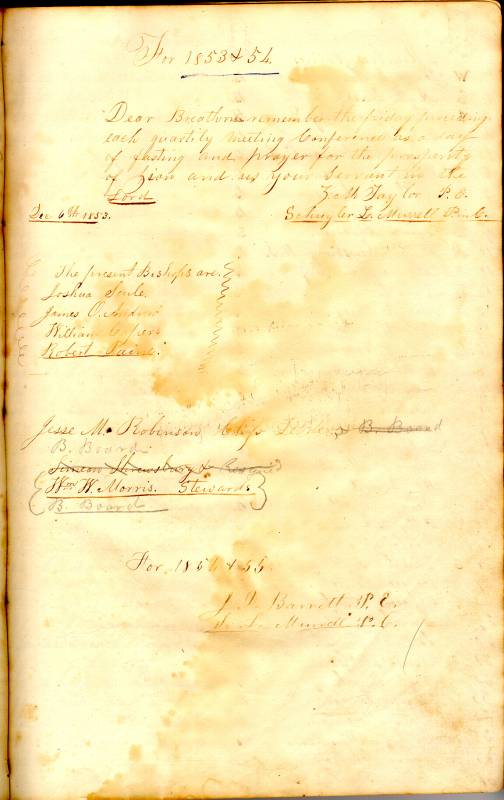 For 1853 & 54.
Dear Breathren remember the friday preceeding
each quartily meeting Conference as a day
of fasting and prayer for the prosperity
of Zion and us your Servant in the
Lord
Z. M. Taylor P. E.
Dec 6th 1853.
Schuyler L. Murrell P. C.
The present Bishops are.
Joshua Soule.
James O. Andrew
William Capers
Robert Paine.
Jesse M. Robinson, Class & B. Board
B. Board
Simeon Shrewsbury &
Wm W. Morris. Steward.
B. Board
For 1854 & 55.
Barrett P. E.
S. L. Murrell P. C.